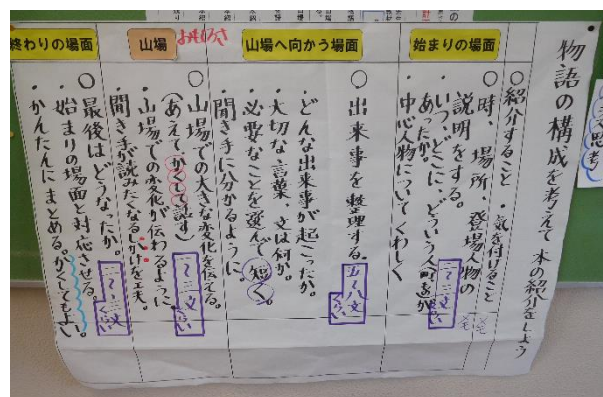 物語の構成を考えて本の紹介をしよう
○紹介すること
・気を付けること
始まりの場面
○時、場所、登場人物の
説明をする。
・いつ、どこに、どういう人物が
あったか。
・中心人物についてくわしく
二〜三文
くらい
山場へ向かう場面
○出来事を整理する。
五〜八文
くらい
・どんな出来事が起こったか。
・大切な言葉、文は何か。
・必要なことを選んで短く。
聞き手に分かるように。
山場
○山場での大きな変化を伝える。
(あえてかくして話す)
・山場での変化が伝わるように
聞き手が読みたくなるしかけを工夫。
二〜三文
くらい
終わりの場面
○最後はどうなったか。
・始まりの場面と対応させる。
・かんたんにまとめる。かくしてもよい。
二〜三文
くらい